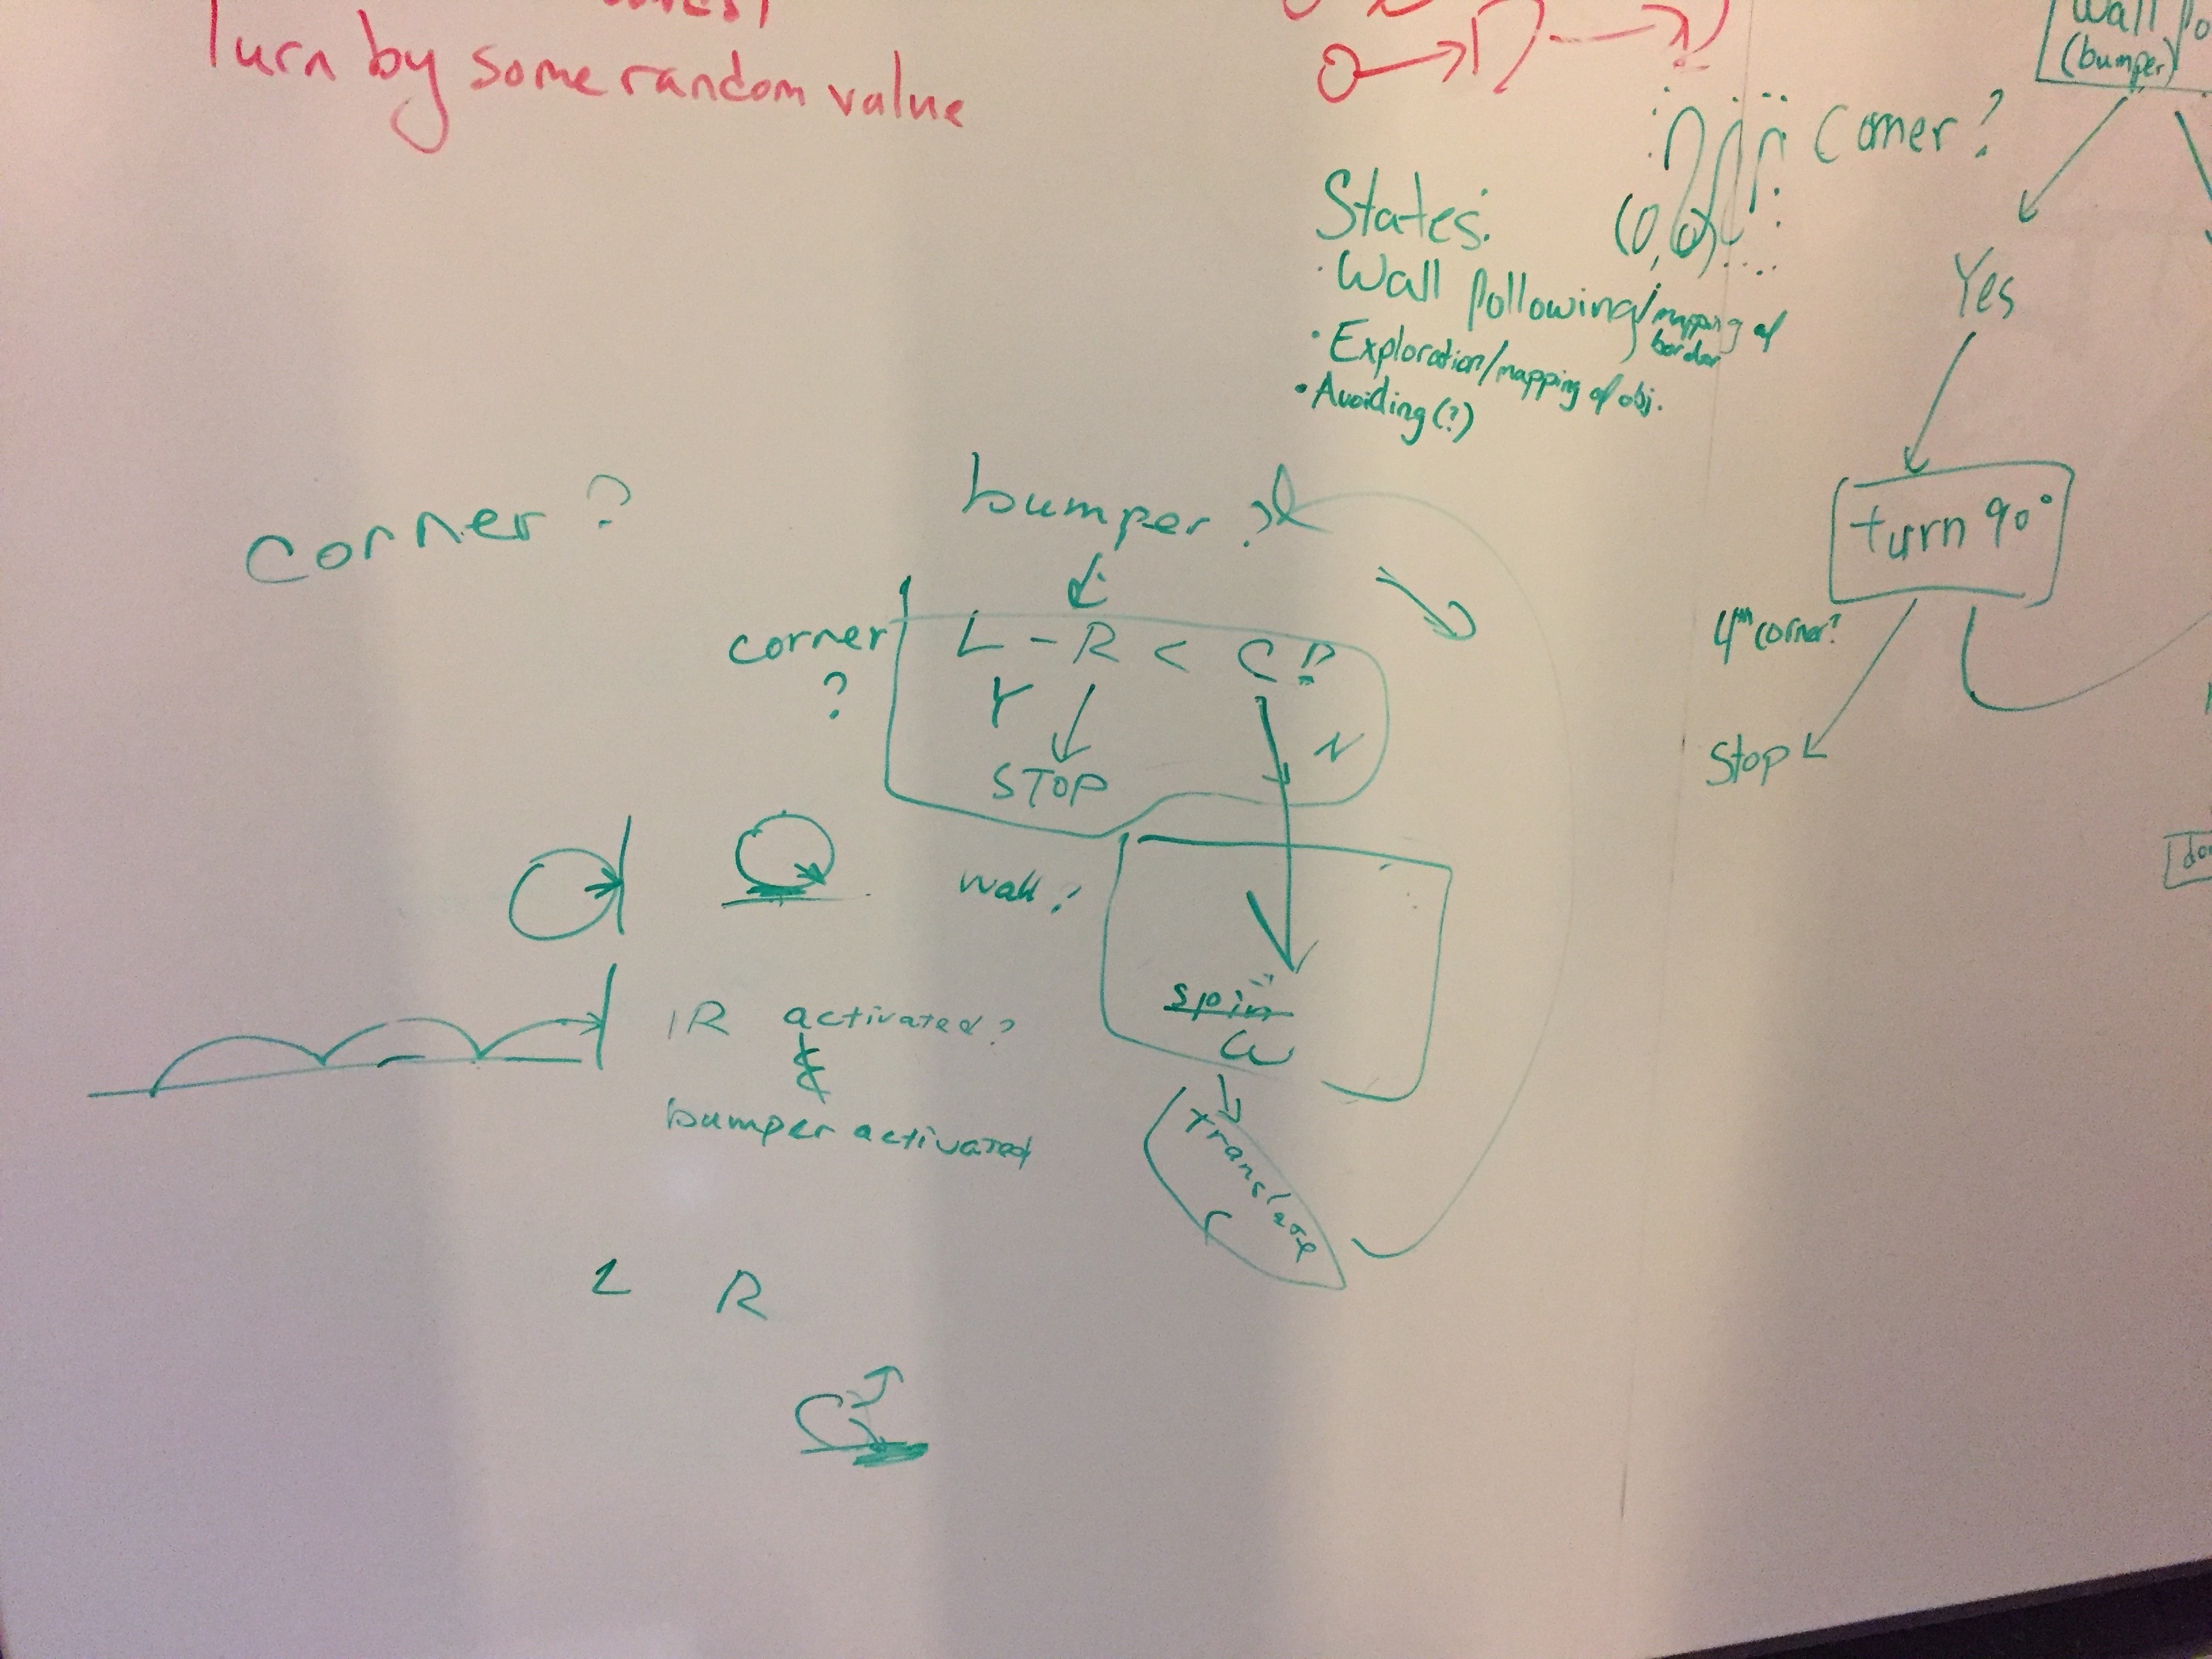 Turn by some random value
Wall
(bumper)
Corner?
States:
(0,0)
· Wall following/mapping of border
· Exploration/mapping of obj.
· Avoiding (?)
Yes
turn 90°
4th corner?
Stop
corner?
bumper?
corner
?
L - R < C?
Y
N
STOP
wall?
spin
ω
translate
r
IR activated?
&
bumper activated
L R